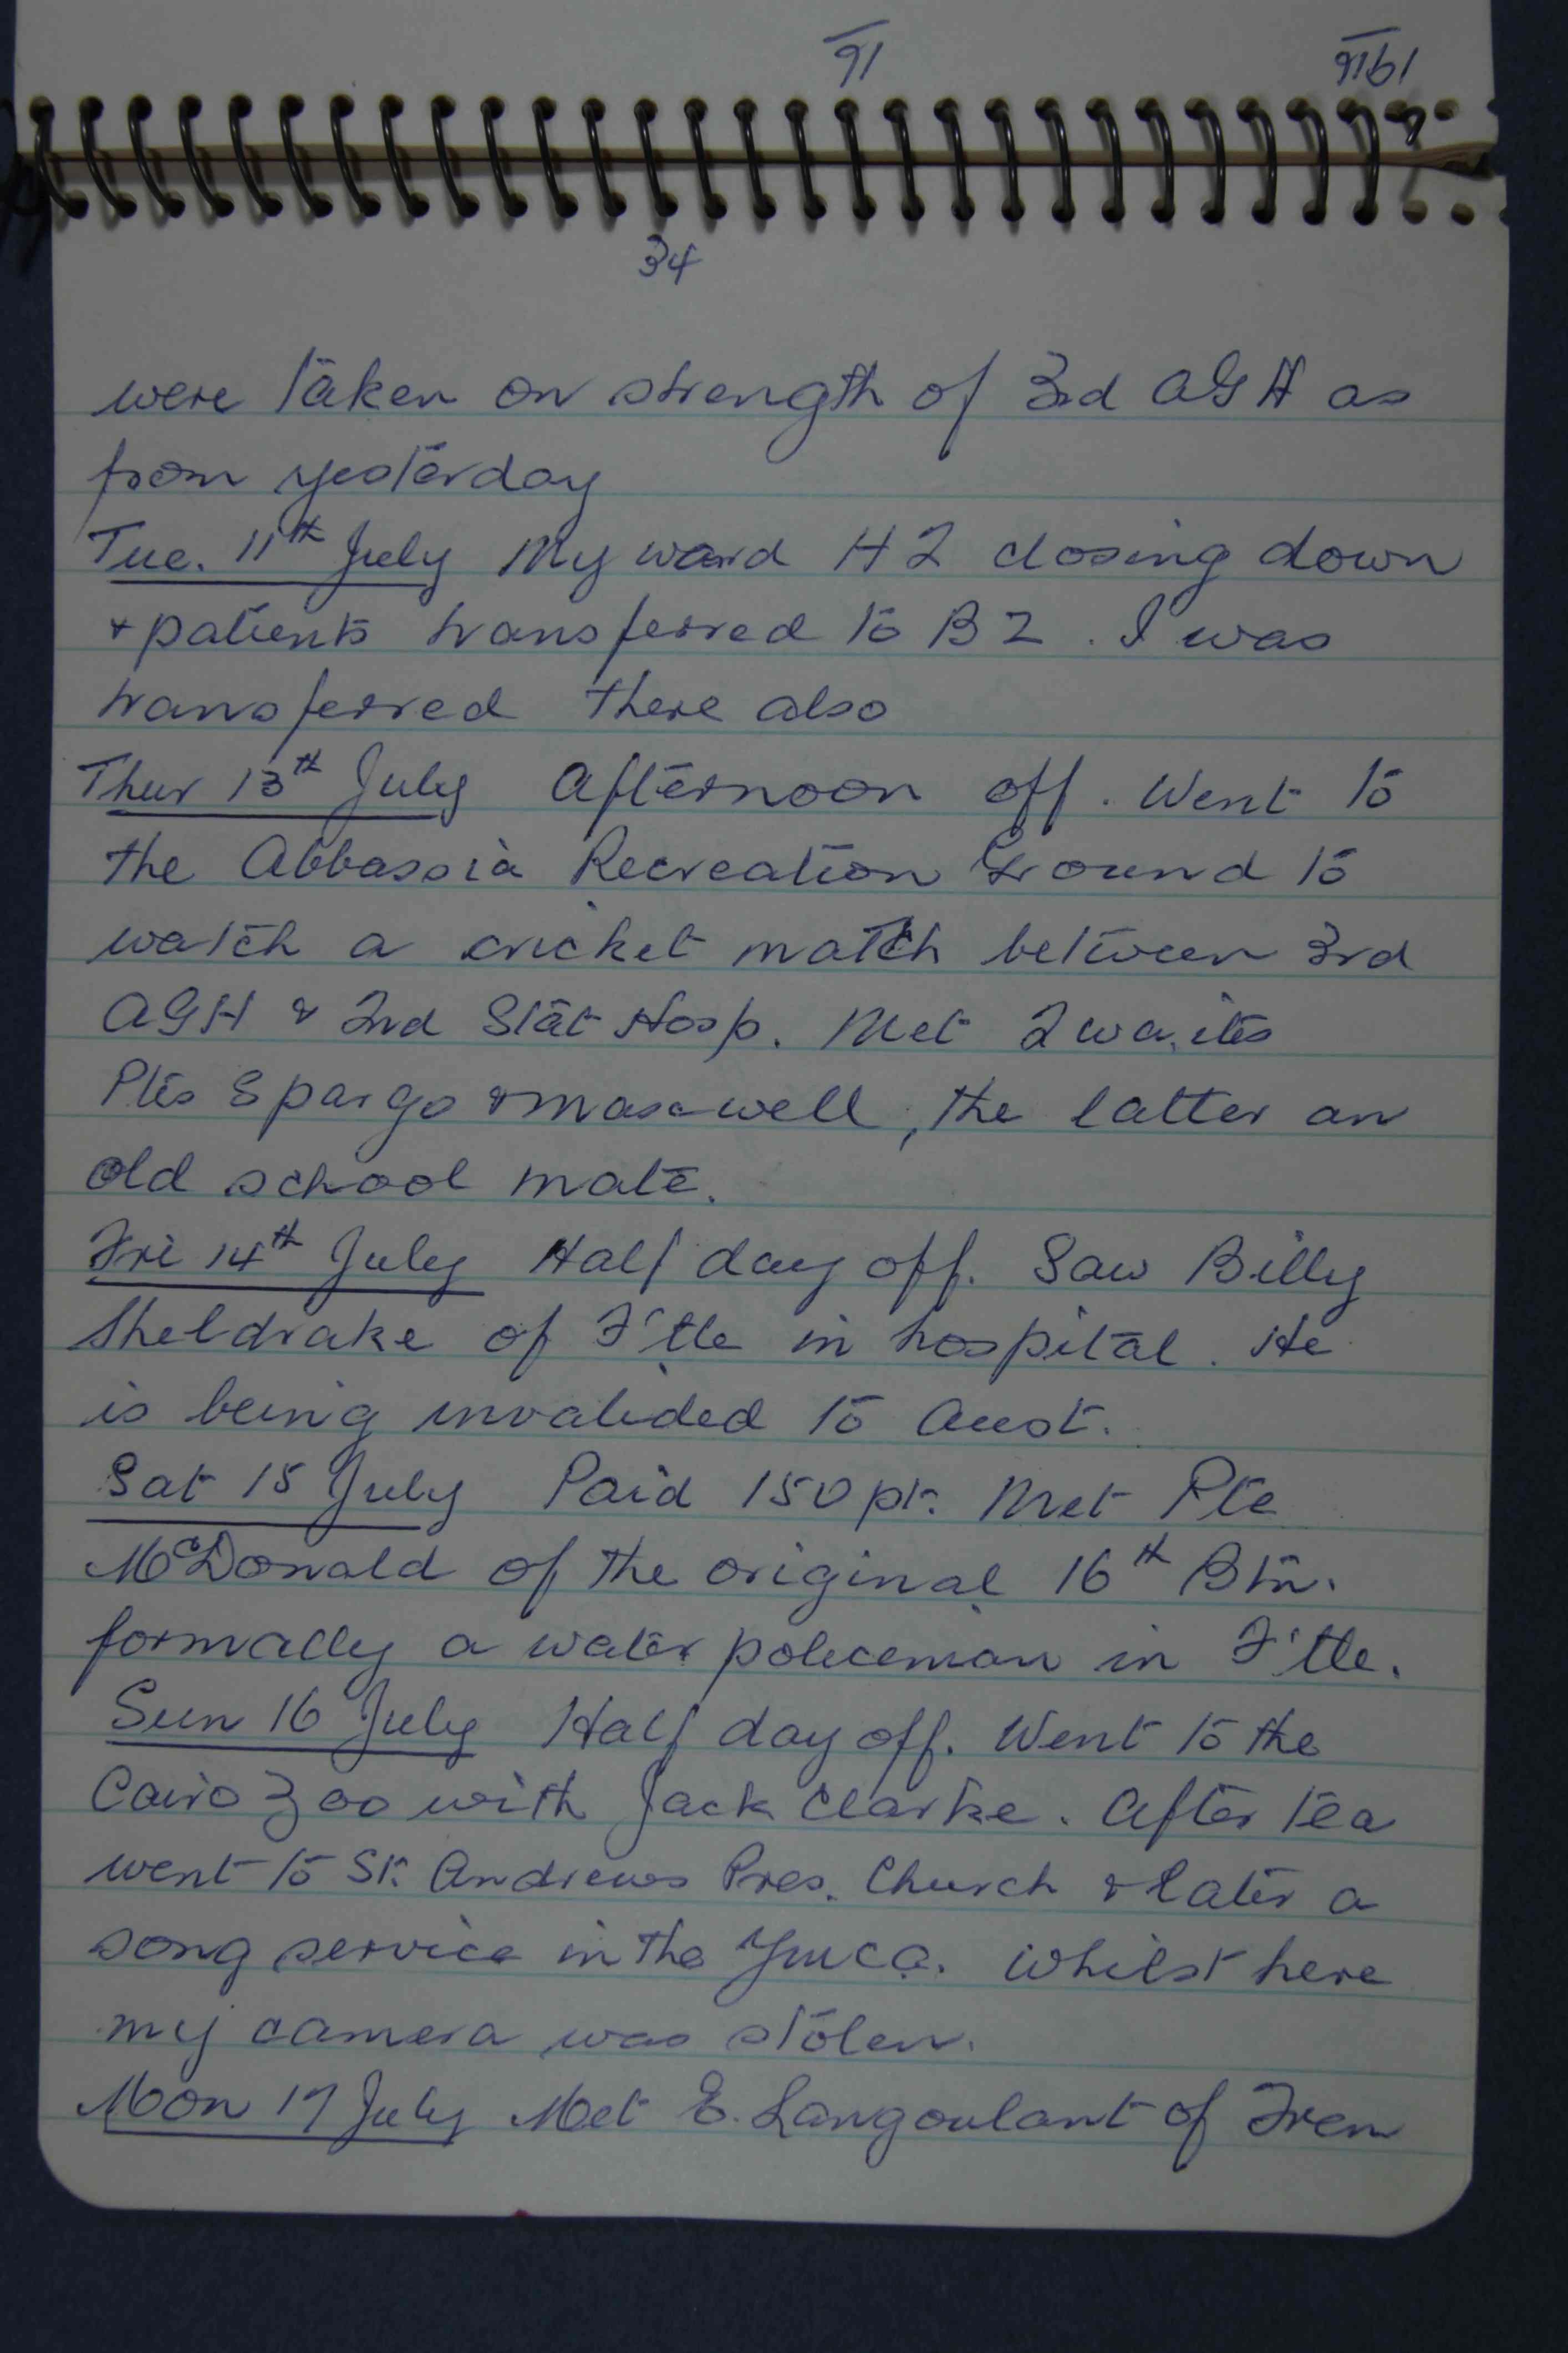 91 1916
34
were taken on strength of 3rd AGH as
from yesterday
Tue. 11th July My ward H2 closing down
& patients transferred to B2. I was
transferred there also
Thur 13th July Afternoon off. Went to
the Abbassia Recreation Ground to
watch a cricket match between 3rd
AGH & 2nd Stat Hosp. Met 2 wa. ites
Ptes Spargo & Maxwell, the latter an
old school mate.
Fri 14th July Half day off. Saw Billy
Sheldrake of F'tle in hospital. He
is being invalided to Aust.
Sat 15 July Paid 150 pt. Met Pte
McDonald of the original 16th Btn.
formally a water policeman in F'tle.
Sun 16 July Half day off. Went to the
Cairo Zoo with Jack Clarke. After tea
went to St. Andrews Pres. Church & later a
song service in the YMCA. Whilst here
my camera was stolen.
Mon 17 July Met E. Langoulant of Frem